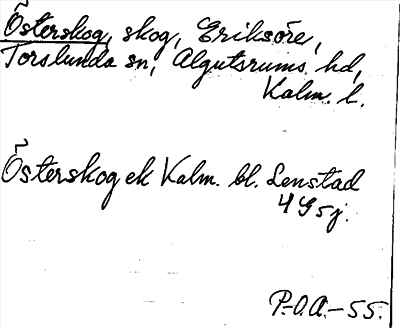 Österskog, skog, Eriksöre,
Torslunda sn, Algutsrums hd,
Kalm. l.
Österskog ek Kalm. bl. Lenstad
4G5j.
P.O.A.-55.